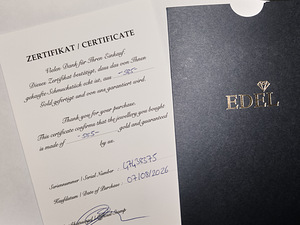 ZERTIFIKAT / CERTIFICATE
Vielen Dank für Ihren Einkauf.
Dieses Zertifikat bestätigt, dass das von Ihnen
gekaufte Schmuckstück echt ist, aus -585-
Gold gefertigt und von uns garantiert wird.
Thank you for your purchase.
This certificate confirms that the jewellery you bought
is made of -585- gold and guaranteed
by us.
Seriennummer / Serial Number: 47438575
Kaufdatum / Date of Purchase: 07/08/2026
EDEL